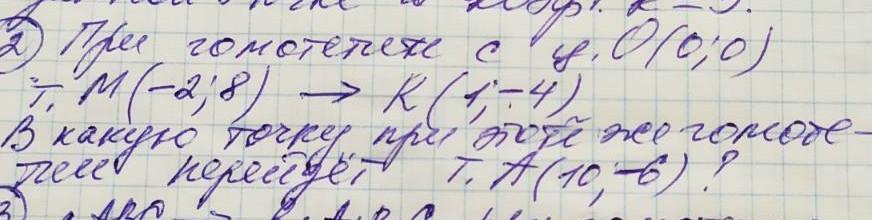 2) При гомотетии с ц. O(0;0)
т. M(-2;8) → K(1;-4)
В какую точку при этой же гомоте-
тии перейдёт т. A(10;-6)?